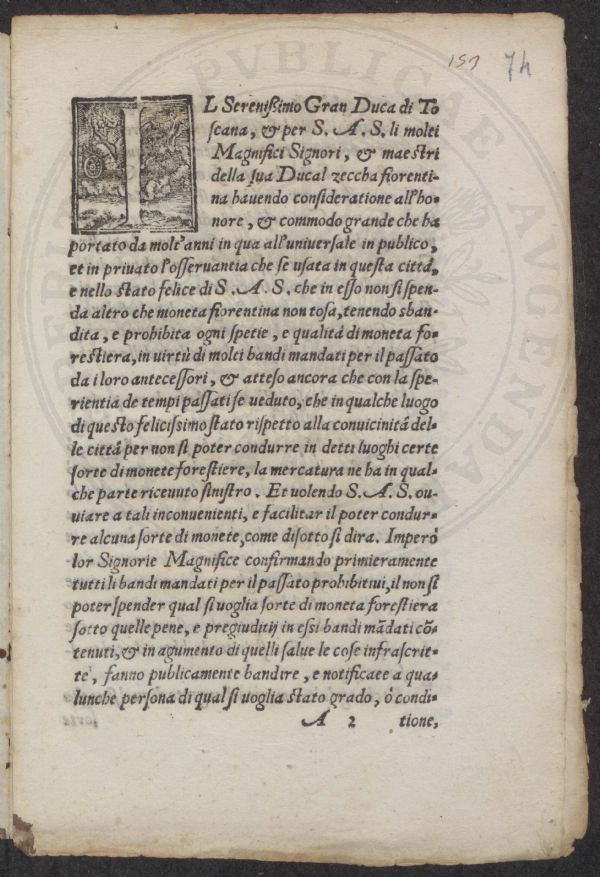 153 74
IL Serenißimo Gran Duca di To
ſcana, & per S. A. S. li molti
Magnifici Signori, & maeſtri
della ſua Ducal zeccha fiorenti-
na hauendo conſideratione all'ho-
nore, & commodo grande che ha
portato da molt'anni in qua all'uniuerſale in publico,
et in priuato l'oſſeruantia che ſe uſata in queſta cittá,
e nello ſtato felice di S. A. S. che in eſſo non ſi ſpen-
da altro che moneta fiorentina non toſa, tenendo sban-
dita, e prohibita ogni ſpetie, e qualitá di moneta fo-
reſtiera, in uirtù di molti bandi mandati per il paſſato
da i loro anteceſſori, & atteſo ancora che con la ſpe-
rientia de tempi paſſati ſe ueduto, che in qualche luogo
di queſto feliciſſimo ſtato riſpetto alla conuicinitá del-
le cittá per non ſi poter condurre in detti luoghi certe
ſorte di monete foreſtiere, la mercatura ne ha in qual-
che parte riceuuto ſiniſtro. Et uolendo S. A. S. ou-
uiare a tali inconuenienti, e facilitar il poter condur-
re alcuna ſorte di monete, come diſotto ſi dira. Imperò
lor Signorie Magnifice confirmando primieramente
tutti li bandi mandati per il paſſato prohibitiui, il non ſi
poter ſpender qual ſi uoglia ſorte di moneta foreſtiera
ſotto quelle pene, e pregiuditij in eſsi bandi mãdati cõ-
tenuti, & in agumento di quelli ſalue le coſe infraſcrit-
te, fanno publicamente bandire, e notificaee a qua-
lunche perſona di qual ſi uoglia ſtato grado, ò condi-
A 2 tione,